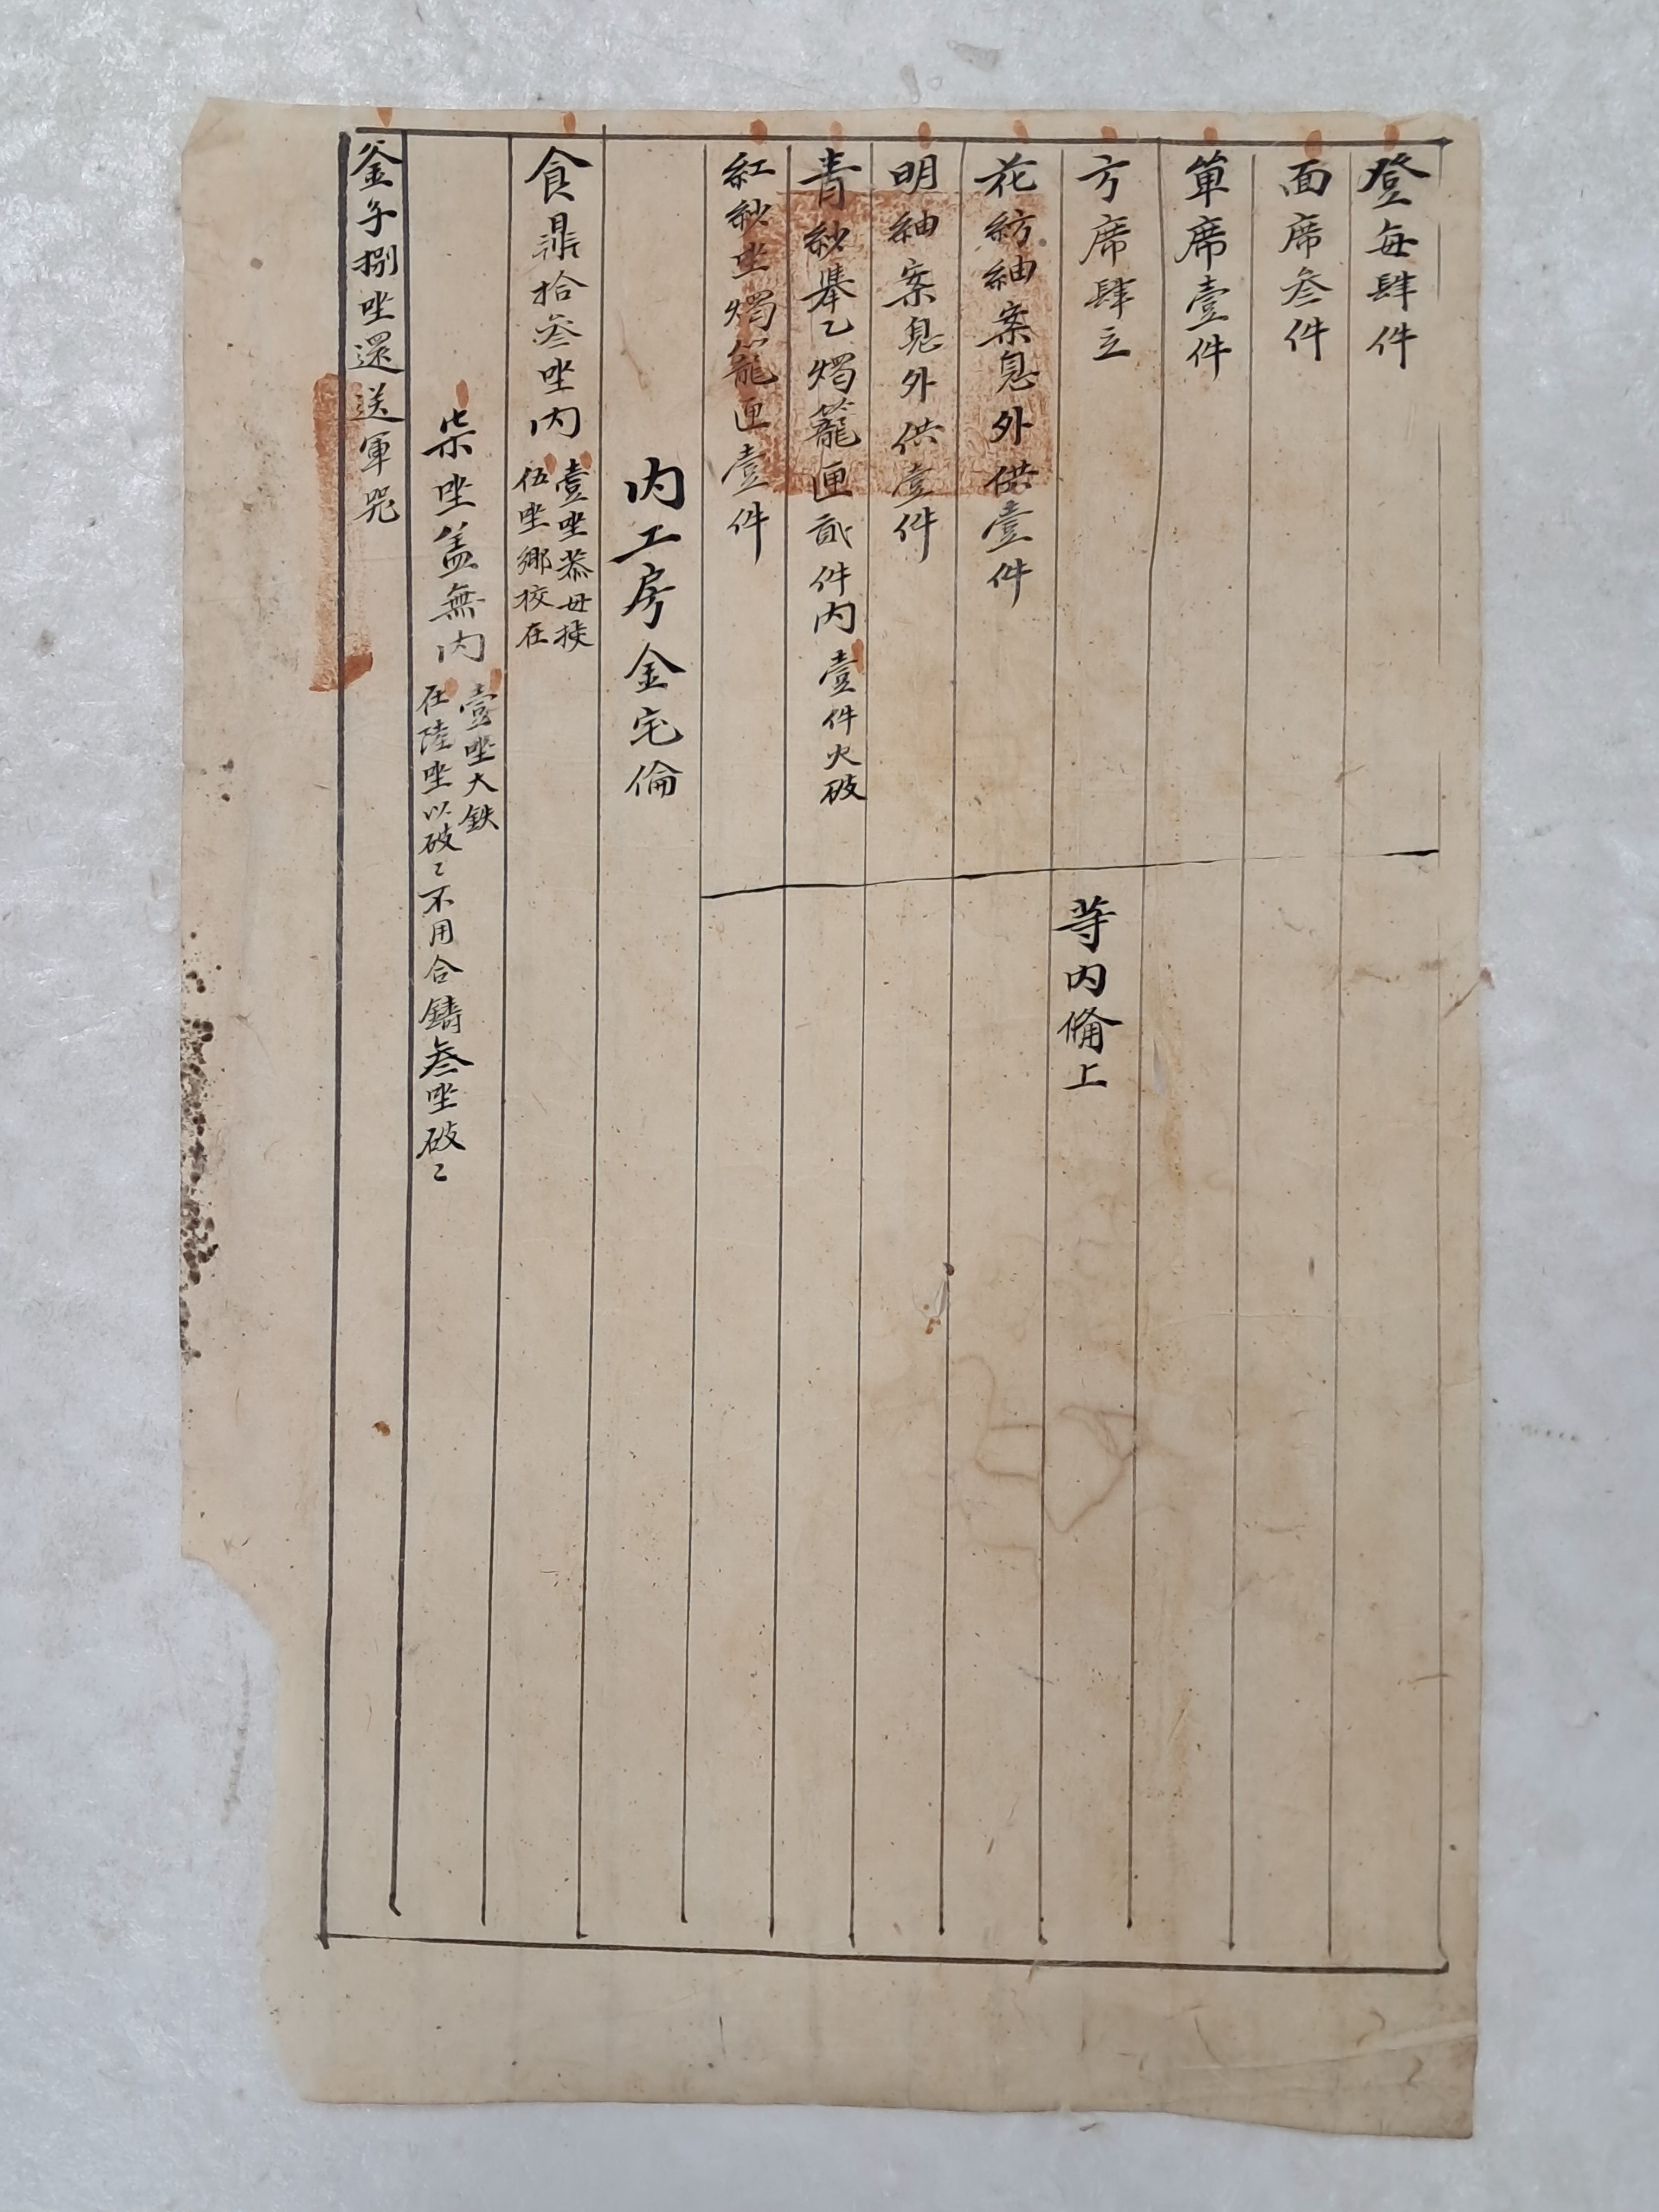 登每肆件
面席叁件
簞席壹件
方席肆立
等內俻上
花紡紬案息外供壹件
明紬案息外供壹件
青紗擧乙燭籠匣貳件內壹件火破
紅紗坐燭籠匣壹件
內工房金宅倫
食鼎拾叁坐內
壹坐恭母掞
伍坐鄉校在
柒坐盖無內
壹坐大鉄
在陸坐以破〻不用合鑄叁坐破〻
釜子捌坐還送軍器